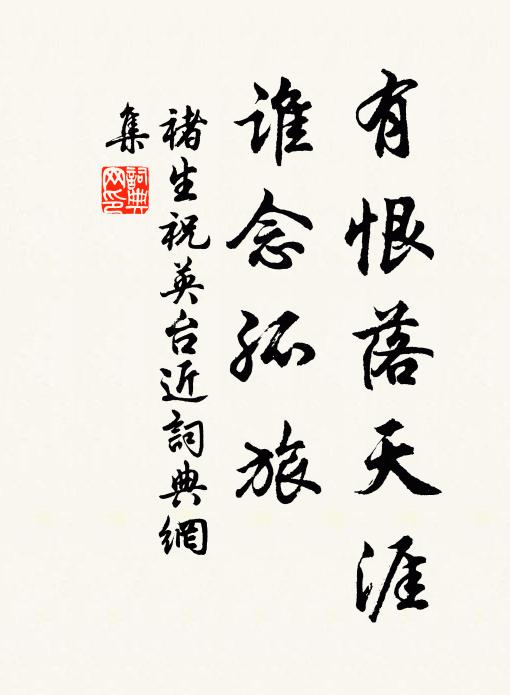 有恨落天涯
谁念孤旅
褚生祝英台近詞典網
集
詞典网印